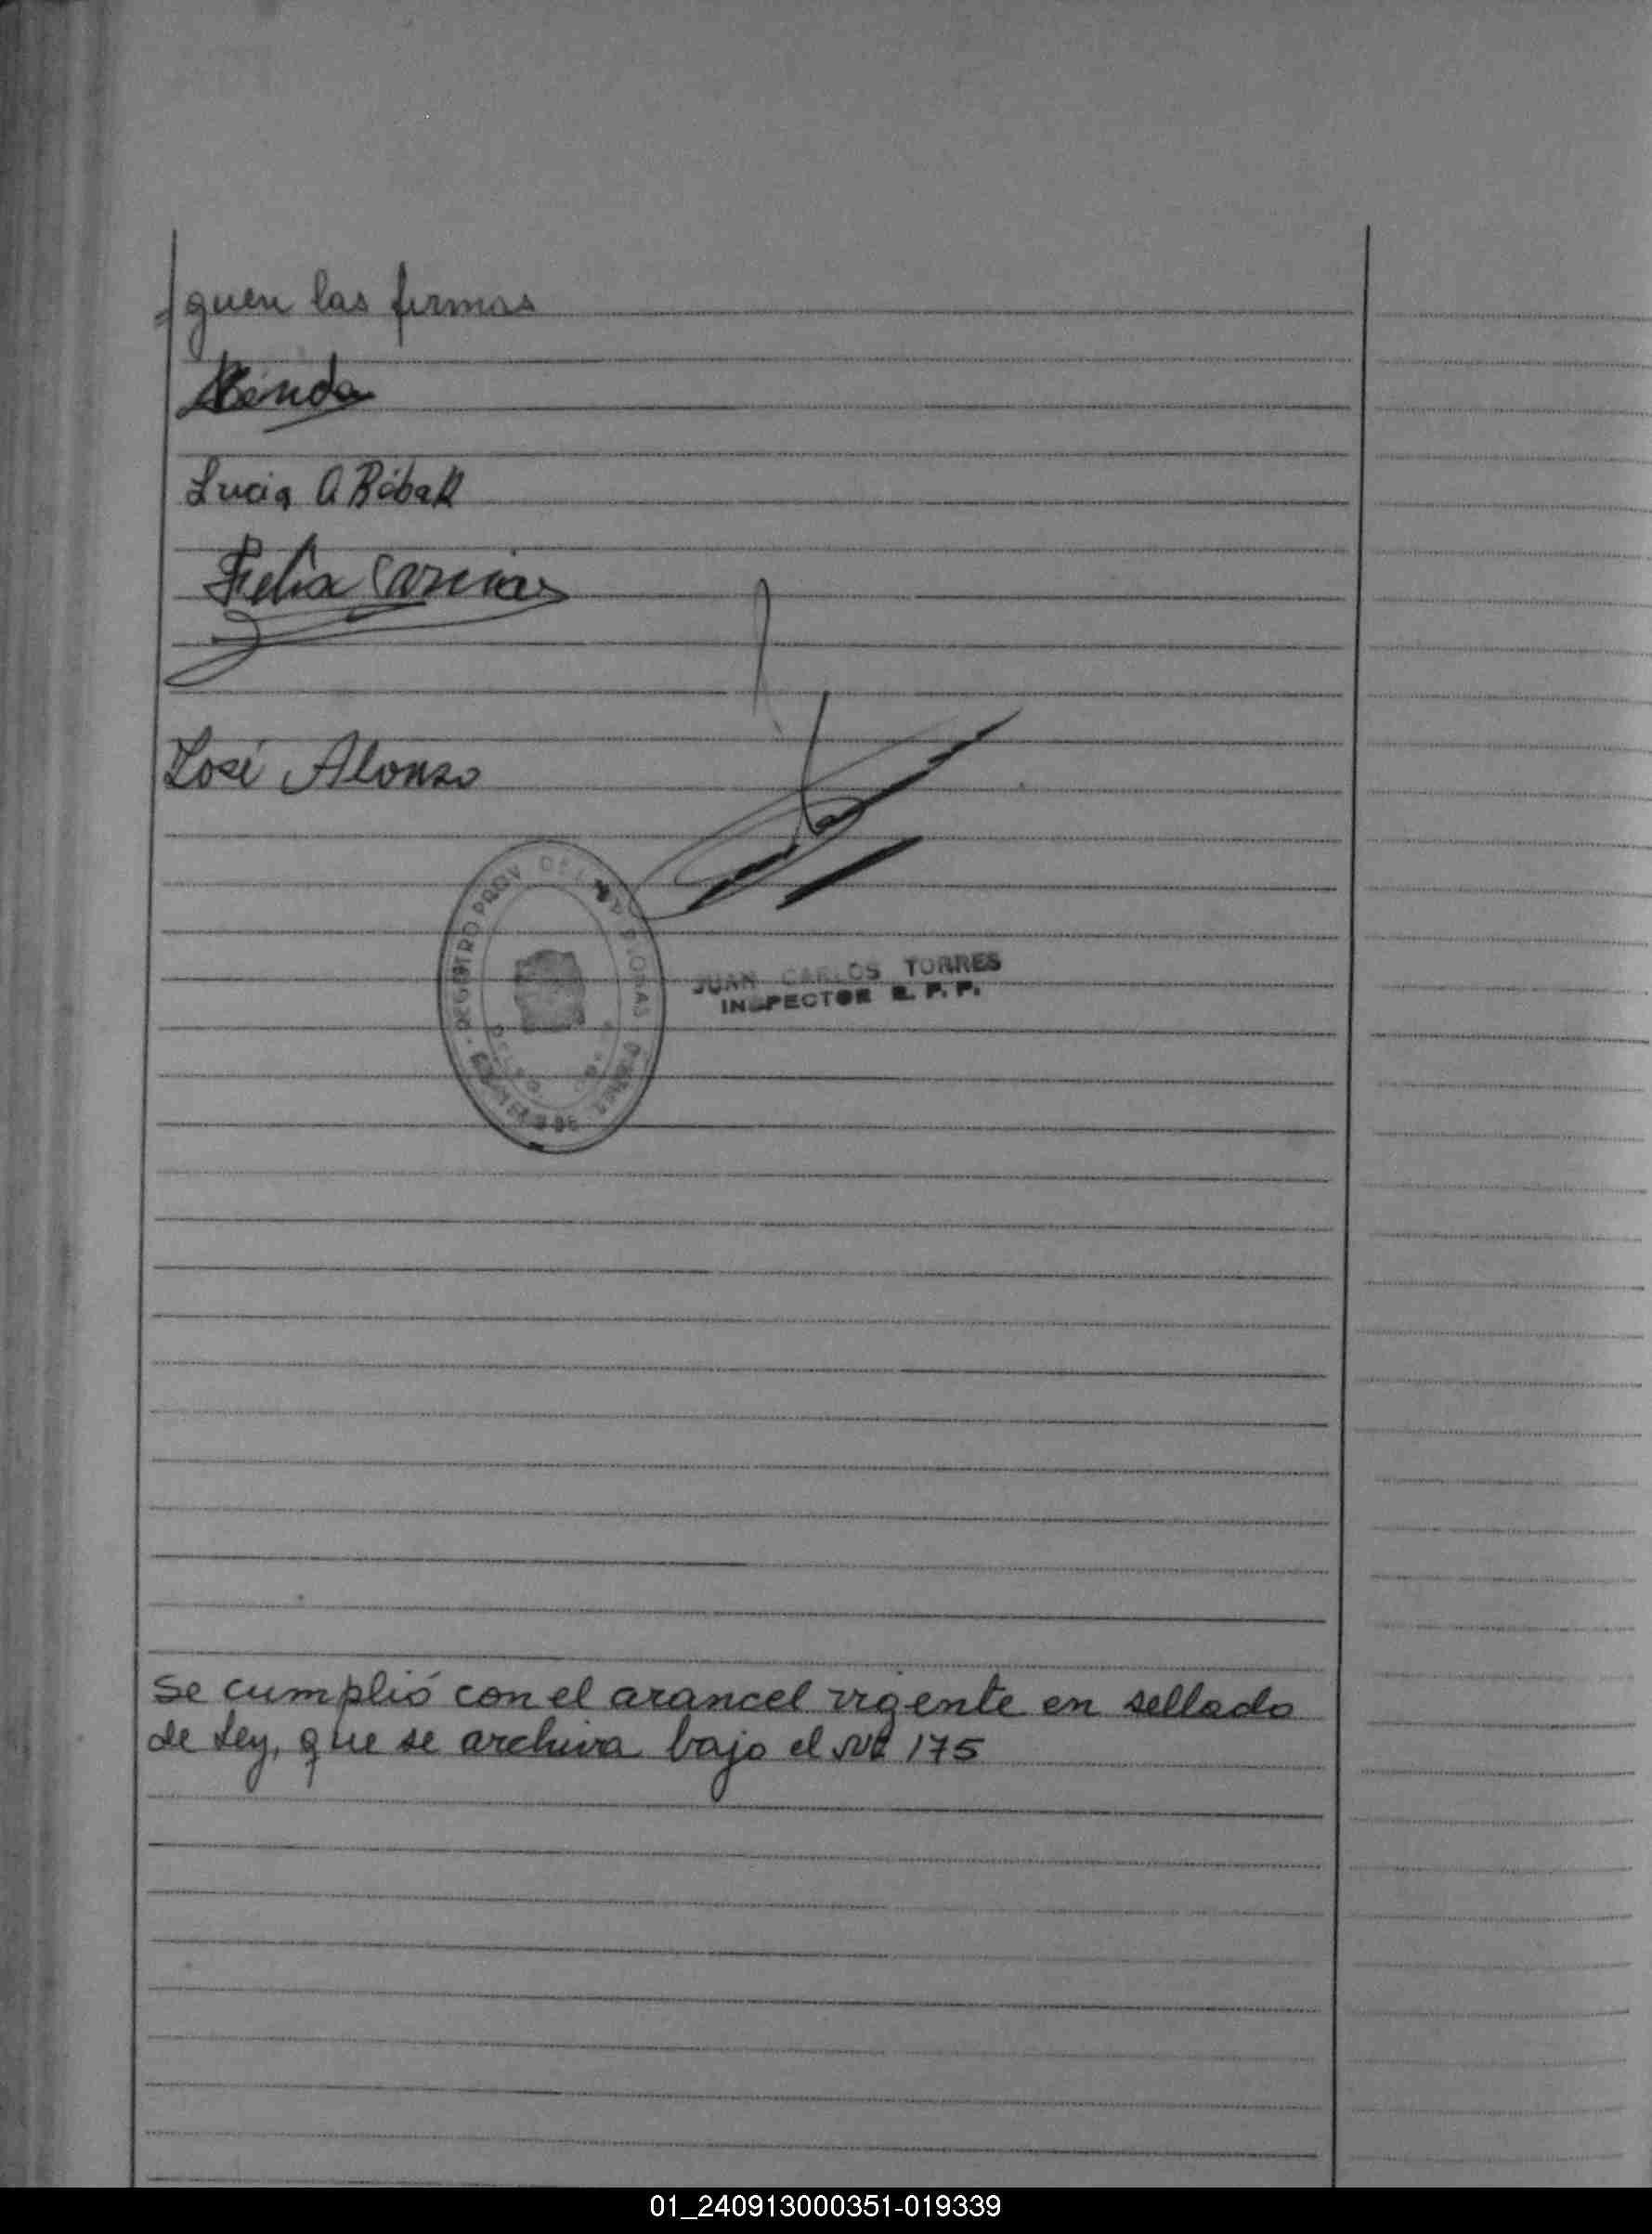 guen las firmas
Lucia A Bobak
Felix
José Alonso
REGISTRO PROV. DE LAS PERSONAS
JUAN CARLOS TORRES
INSPECTOR R. P. P.
Se cumplió con el arancel vigente en sellado
de Ley, que se archiva bajo el Nº 175
01_240913000351-019339